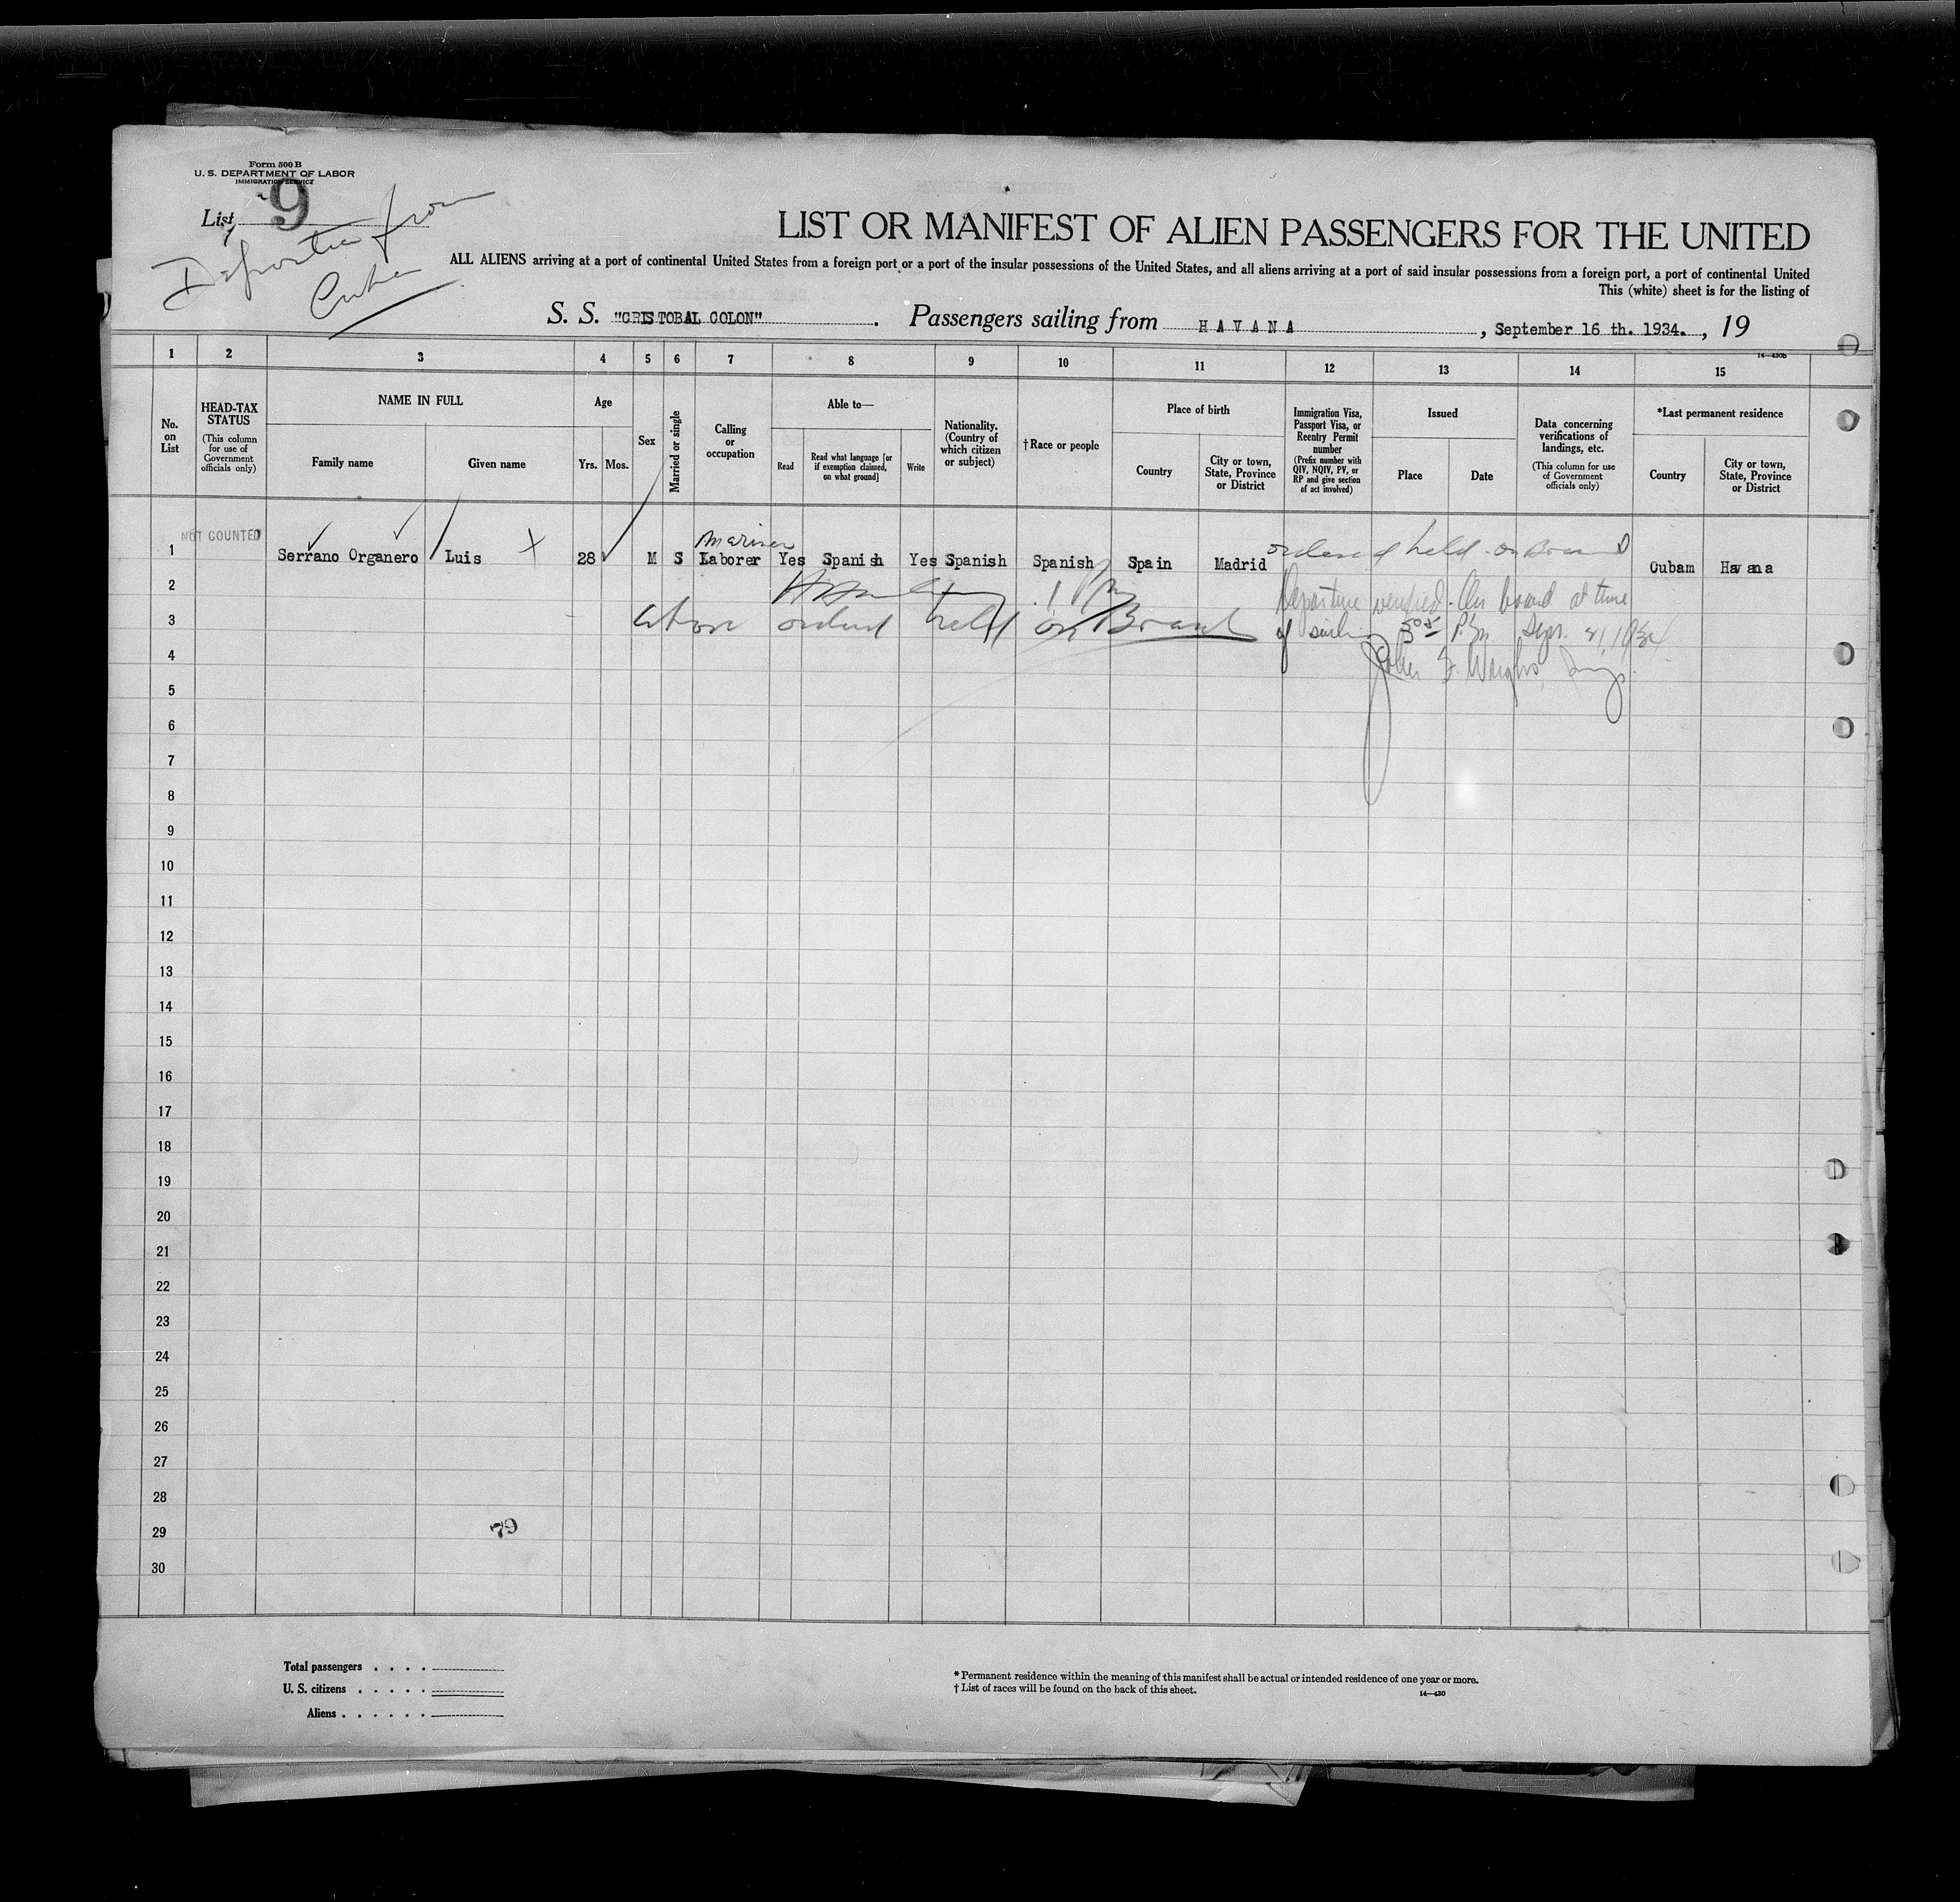 Form 500 B
U. S. DEPARTMENT OF LABOR
IMMIGRATION SERVICE
List 9
from
Cuba
LIST OR MANIFEST OF ALIEN PASSENGERS FOR THE UNITED
ALL ALIENS arriving at a port of continental United States from a foreign port or a port of the insular possessions of the United States, and all aliens arriving at a port of said insular possessions from a foreign port, a port of continental United
This (white) sheet is for the listing of
S. S. "CRISTOBAL COLON" . Passengers sailing from HAVANA , September 16 th. 1934. , 19
14—430b
1 2 3 4 5 6 7 8 9 10 11 12 13 14 15
No. on List
HEAD-TAX STATUS
(This column for use of Government officials only)
NAME IN FULL
Family name
Given name
Age
Yrs. Mos.
Sex
Married or single
Calling or occupation
Able to—
Read
Read what language [or if exemption claimed, on what ground]
Write
Nationality. (Country of which citizen or subject)
†Race or people
Place of birth
Country
City or town, State, Province or District
Immigration Visa, Passport Visa, or Reentry Permit number
(Prefix number with QIV, NQIV, PV, or RP and give section of act involved)
Issued
Place
Date
Data concerning verifications of landings, etc.
(This column for use of Government officials only)
*Last permanent residence
Country
City or town, State, Province or District
NOT COUNTED
Mariner
ordered held on Board
1 Serrano Organero Luis X 28 M S Laborer Yes Spanish Yes Spanish Spanish Spain Madrid Cubam Havana
2 Departure verified. On board at time
3 above ordered held on Board of sailing 5 05 P.M. Sept. 21, 1934
4 John F.
5
6
7
8
9
10
11
12
13
14
15
16
17
18
19
20
21
22
23
24
25
26
27
28
29 79
30
Total passengers . . . .
U. S. citizens . . . . .
Aliens . . . . . .
* Permanent residence within the meaning of this manifest shall be actual or intended residence of one year or more.
† List of races will be found on the back of this sheet.
14—430